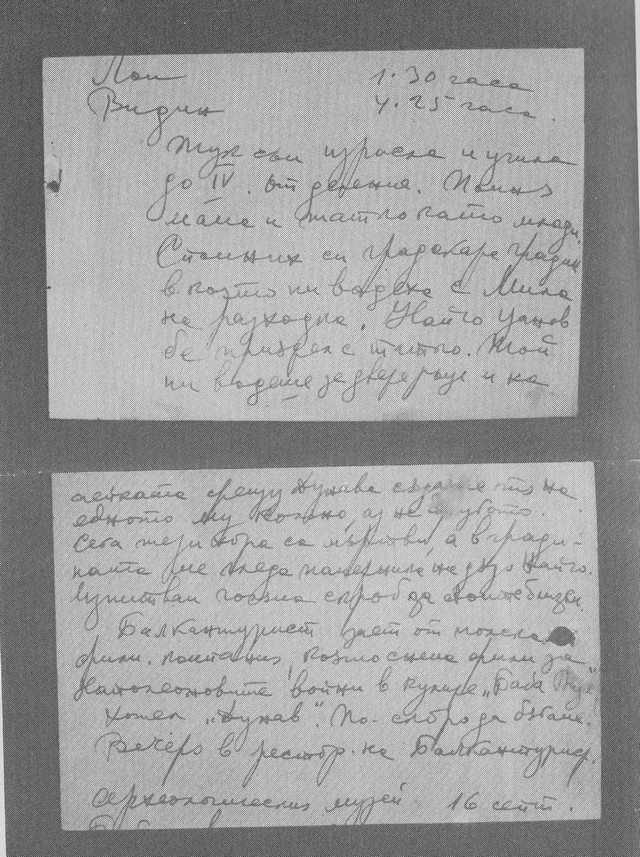 Лом 1.30 часа
Видин 4.25 часа.
Тук съм израсла и учила
до IV отделение. Помня
мама и татко като млади.
Спомних си градската градина
в която ни водеха с Мила
на разходка. Найчо Цанов
бе приятел с татко. Той
ни водеше за двере ръце и на
пейката срещу Дунава сядаше тя на
едното му коляно, аз на другото.
Сега тези хора са мъртви, а в гради-
ната ме гледа паметника на дядо Найчо.
Изпитвам голяма скръб за моите близки.
Балкантурист зает от полска
филм. компания, която снема филм за
Наполеоновите войни в кулите „Баба Вида"
Хотел „Дунав". По-скоро да бягаме.
Вечеря в рестор. на Балкантурист.
Археологически музей 16 септ.